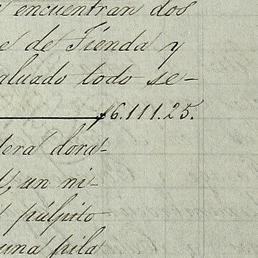 encuentran dos
de Tienda y
aluado todo se-
$6.111.25.
dera dora-
un ni-
púlpito
una pila